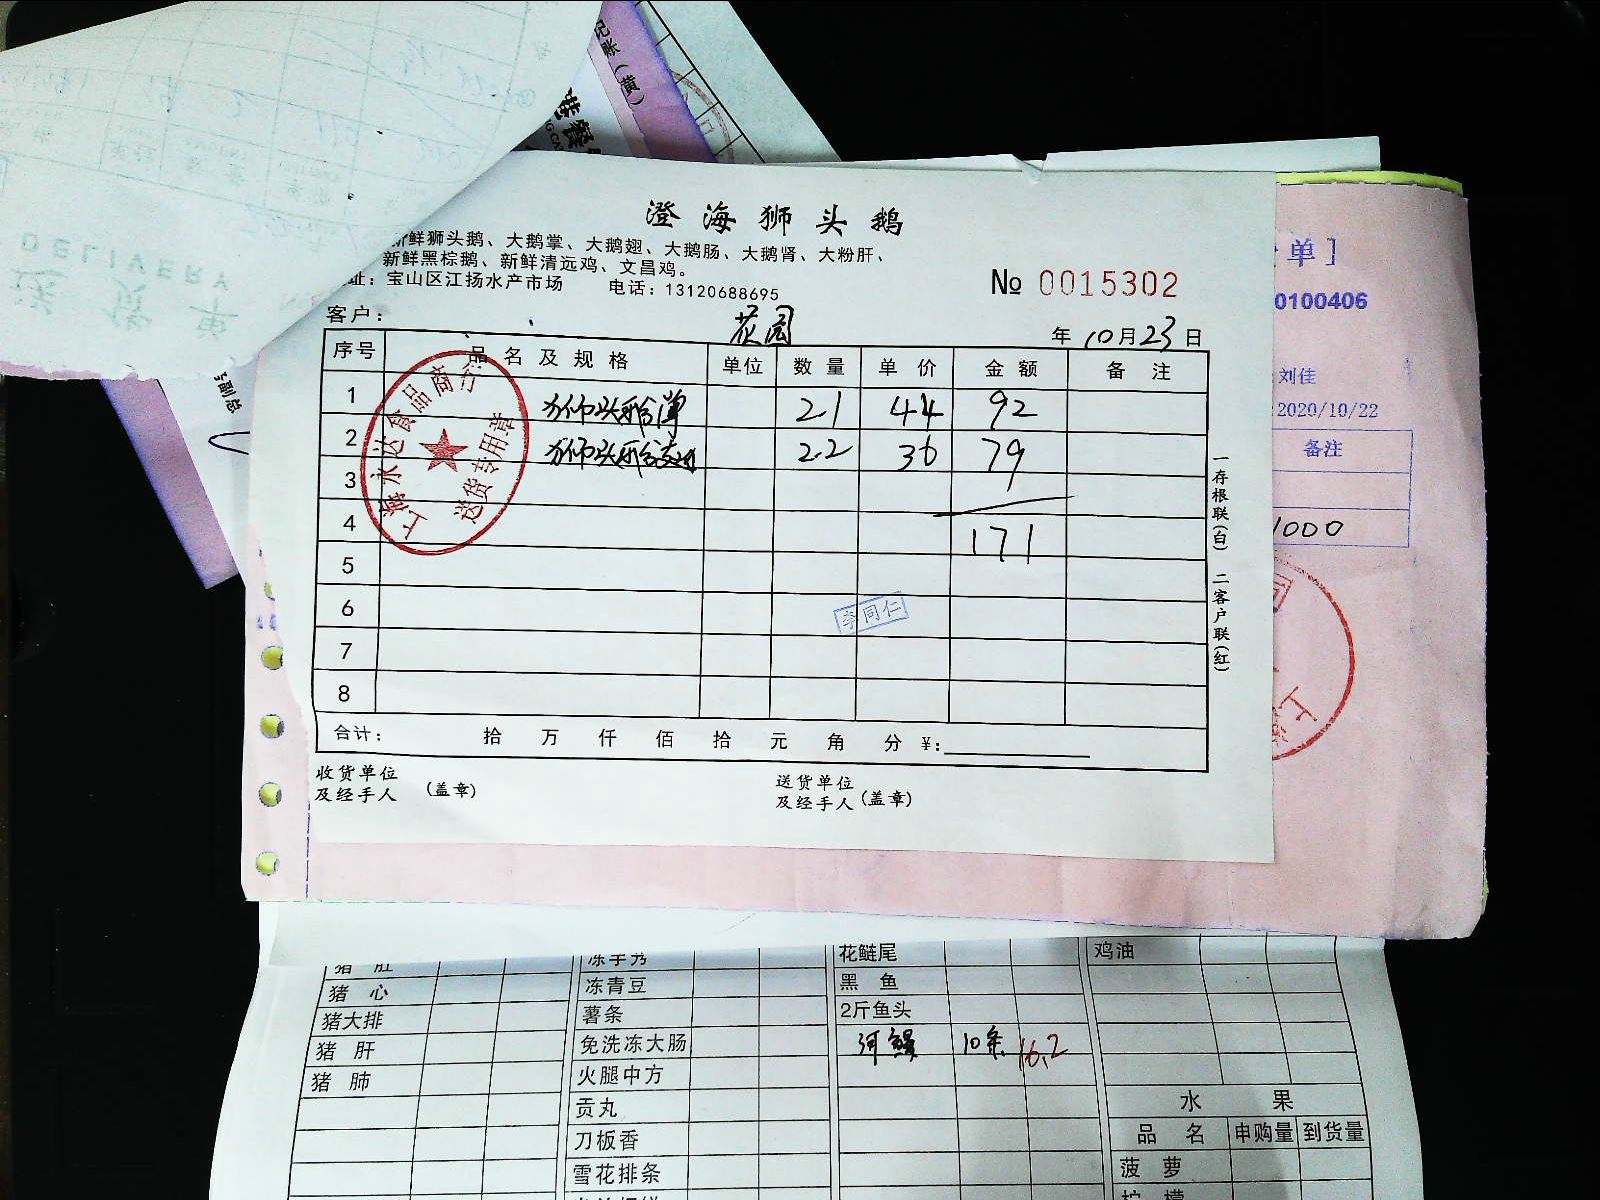 记账（黄）
港餐
DELIVERY
送货单
澄海狮头鹅
新鲜狮头鹅、大鹅掌、大鹅翅、大鹅肠、大鹅肾、大粉肝、
新鲜黑棕鹅、新鲜清远鸡、文昌鸡。
址：宝山区江扬水产市场 电话：13120688695
№ 0015302
客户： 花园 年 10月23日
序号 品名及规格 单位 数量 单价 金额 备注
1 狮头鹅 21 44 92
2 狮头鹅 2.2 36 79
3
4 171
5
6
7
8
上海永达食品商行
送货专用章
李同仁
合计： 拾 万 仟 佰 拾 元 角 分 ¥：
收货单位
及经手人 （盖章）
送货单位
及经手人（盖章）
一存根联（白） 二客户联（红）
单］
0100406
刘佳
2020/10/22
备注
1000
上海
猪肚 花鲢尾 鸡油
猪心 冻青豆 黑鱼
猪大排 薯条 2斤鱼头
猪肝 免洗冻大肠 河鳗 10条 16.2
猪肺 火腿中方
贡丸 水果
刀板香 品名 申购量 到货量
雪花排条 菠萝
柠檬